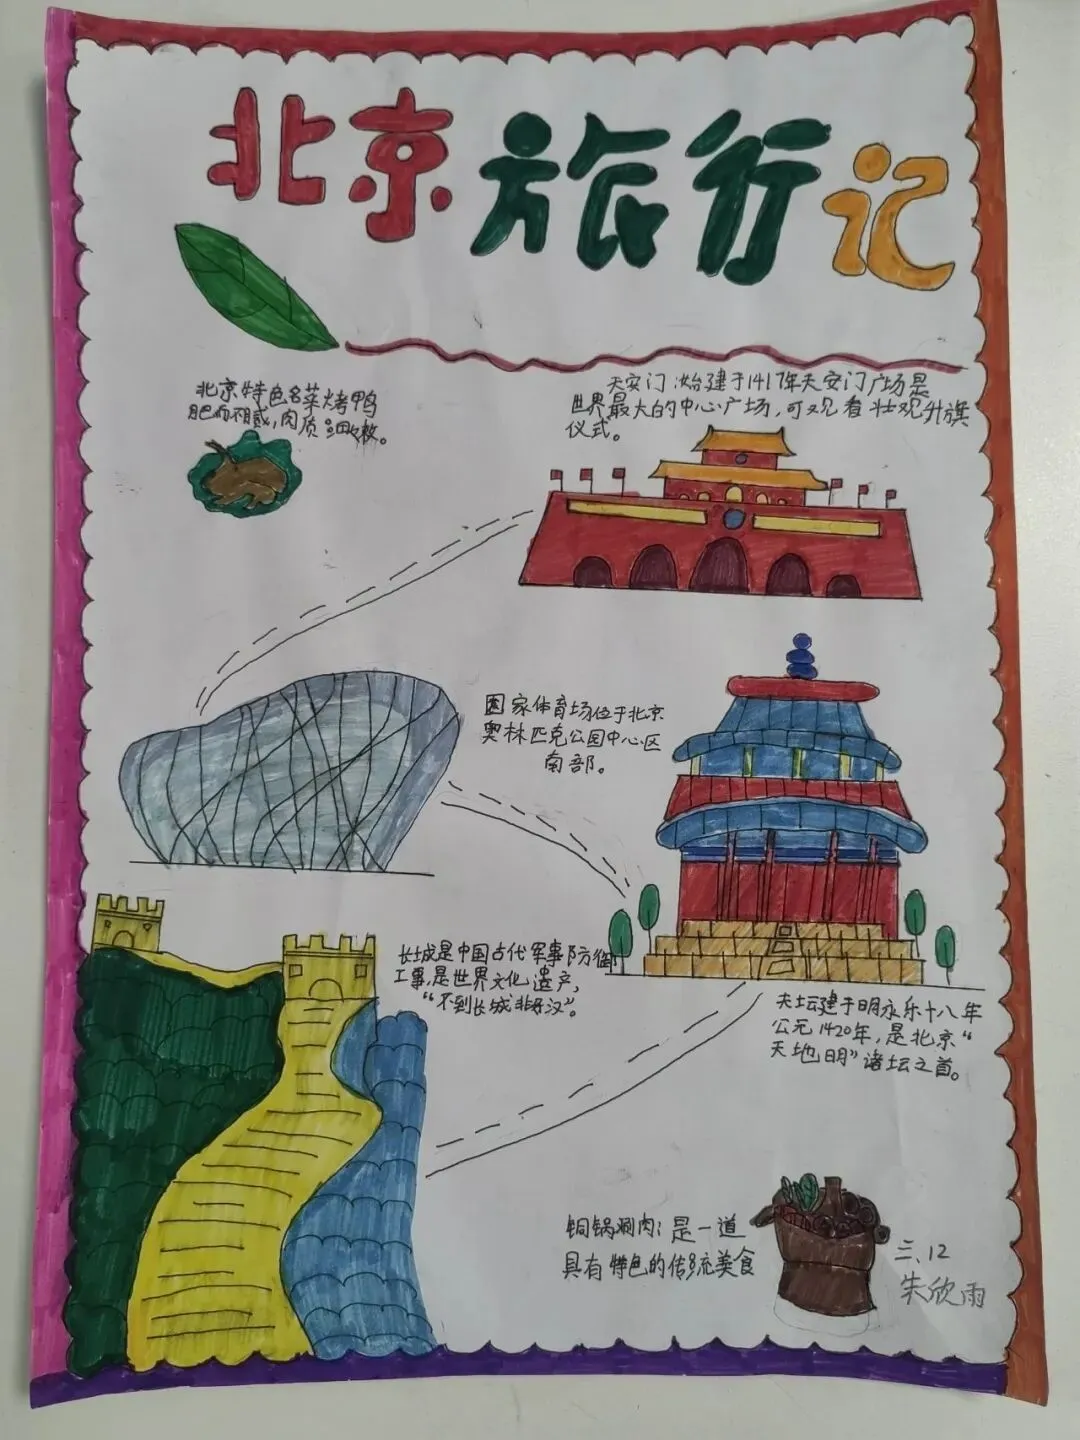 北京旅行记
北京特色名菜烤鸭
肥而不腻,肉质细嫩。
天安门:始建于1417年天安门广场是
世界最大的中心广场,可观看壮观升旗
仪式。
国家体育场位于北京
奥林匹克公园中心区
南部。
长城是中国古代军事防御
工事,是世界文化遗产,
“不到长城非好汉”。
天坛建于明永乐十八年
公元1420年,是北京“
天地日月”诸坛之首。
铜锅涮肉:是一道
具有特色的传统美食
三、12
朱欣雨